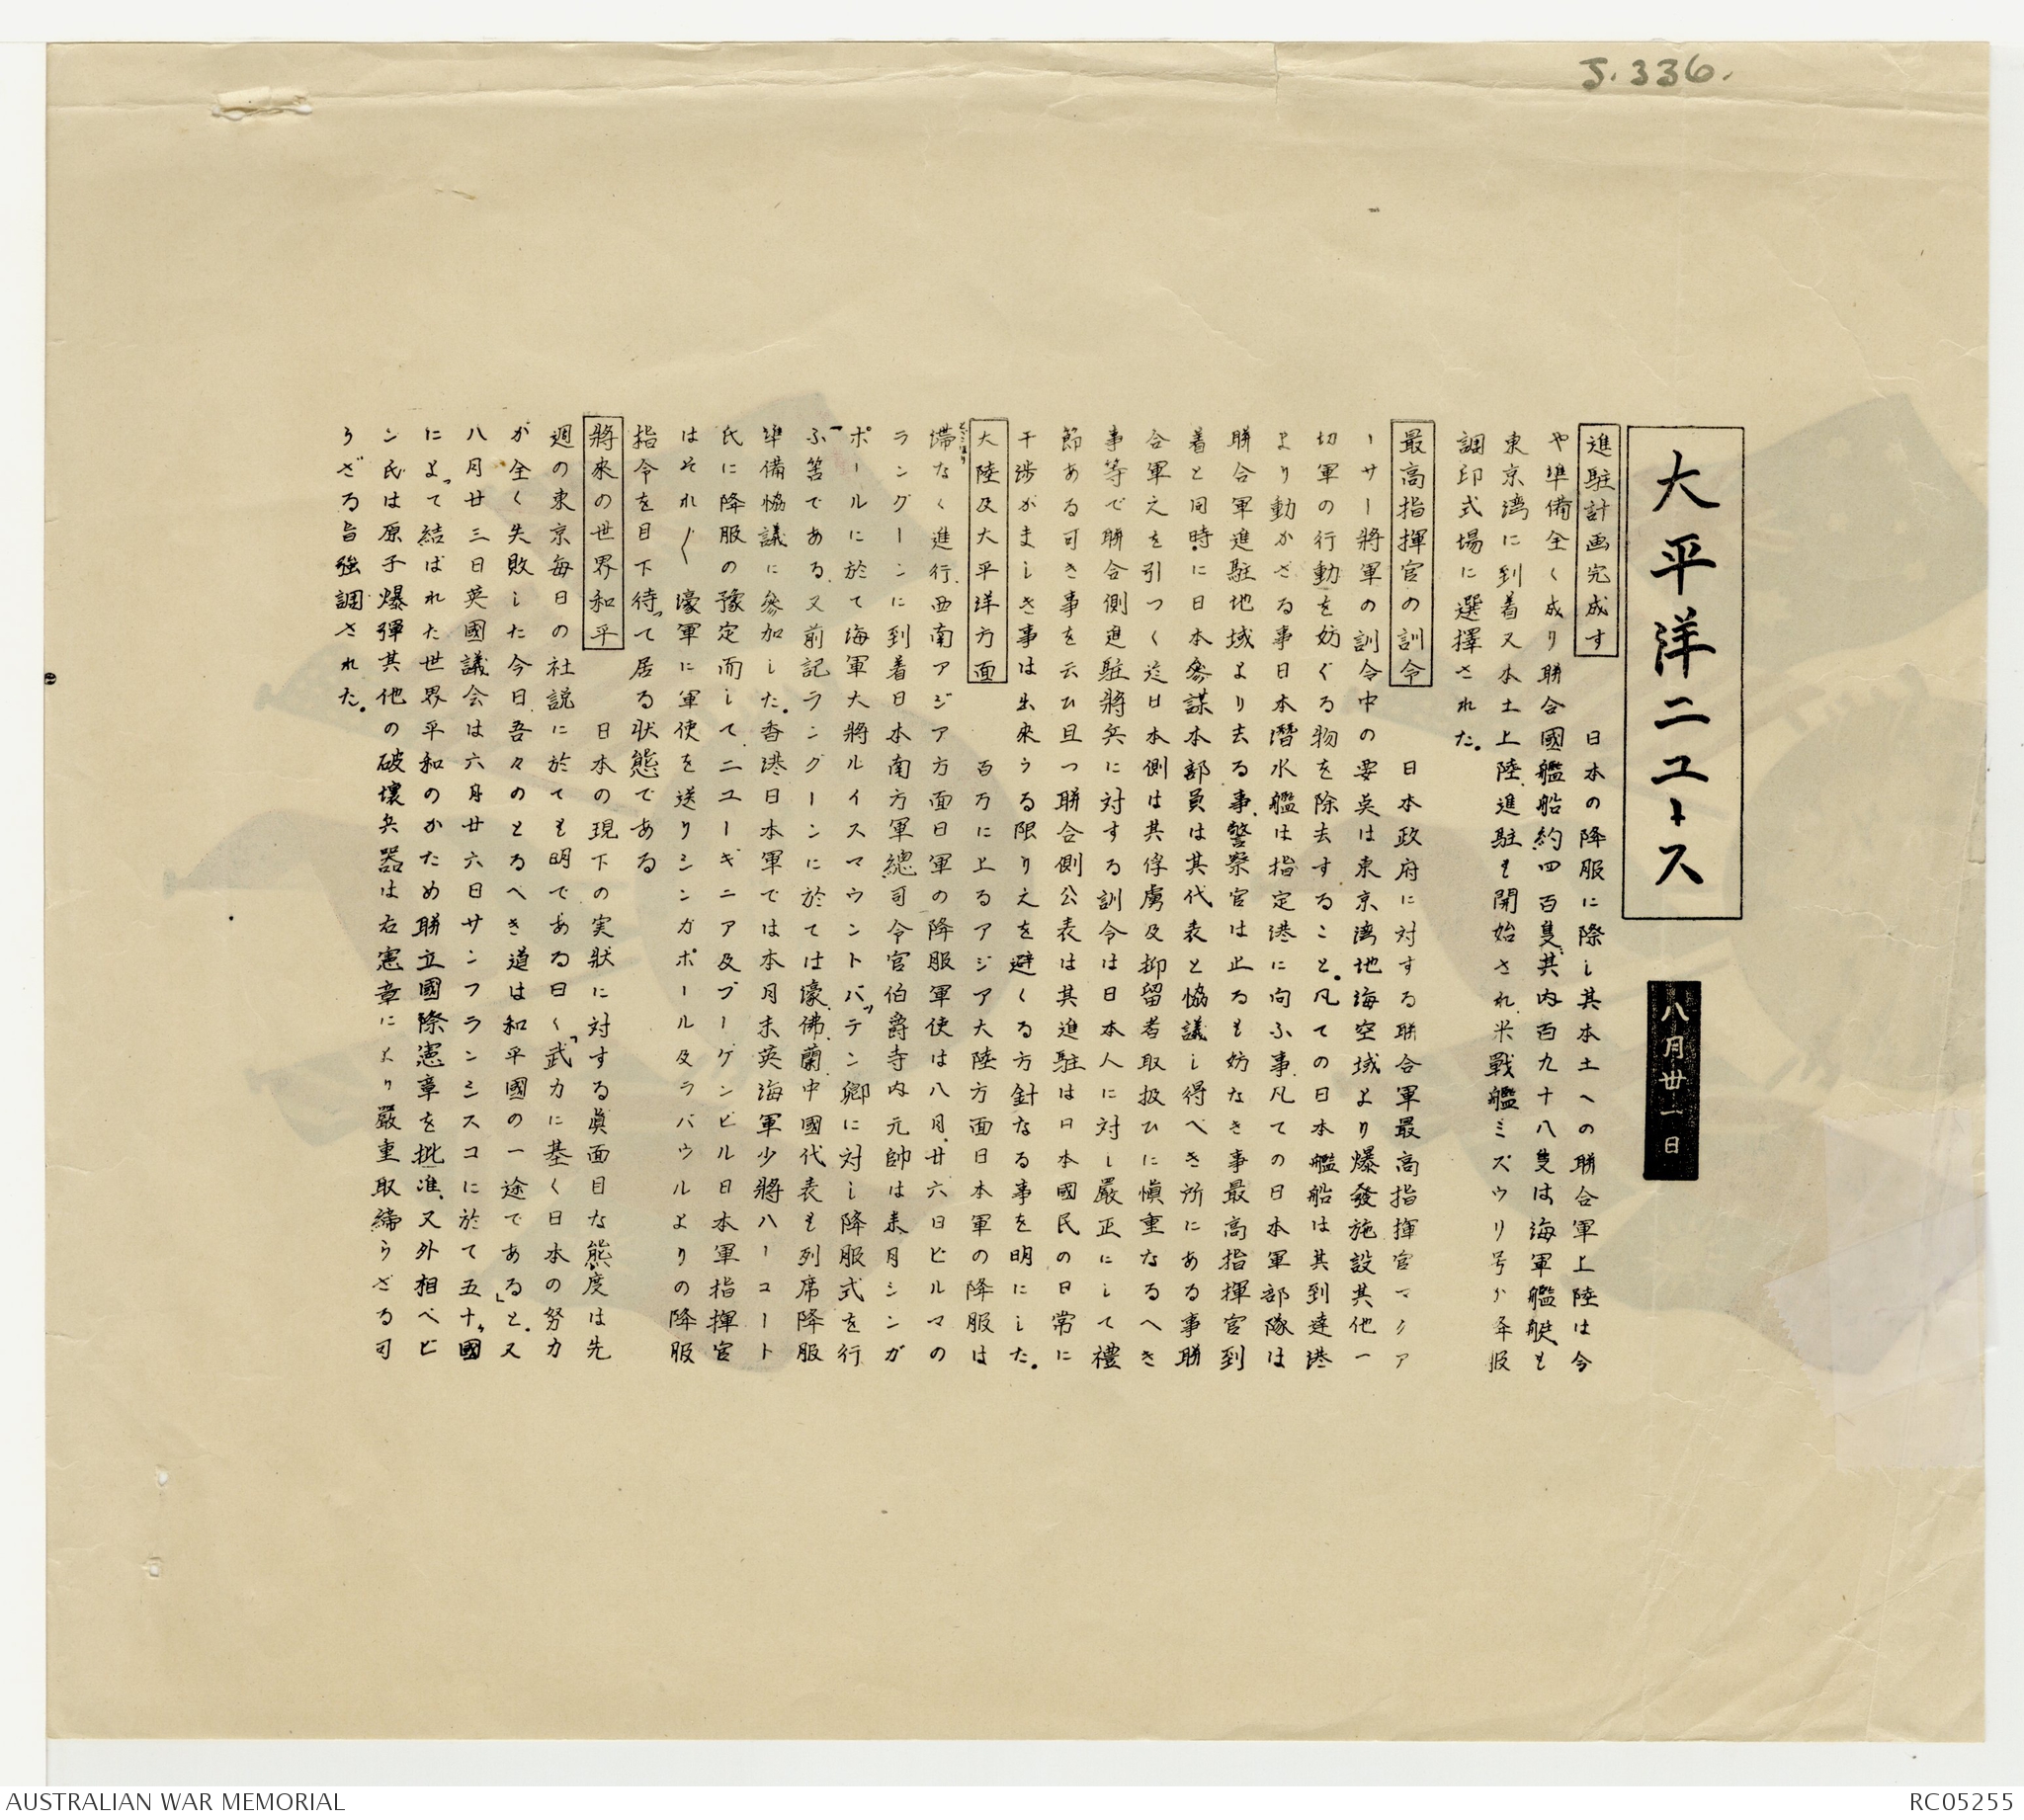 J.336.
大平洋ニュース
八月丗一日
進駐計画完成す　日本の降服に際し其本土への聯合軍上陸は今
や準備全く成り聯合國艦船約四百隻、其内百九十八隻は海軍艦艇、も
東京湾に到着又本土上陸、進駐も開始され米戰艦ミズウリ号が降服
調印式場に選擇された。
最高指揮官の訓令　日本政府に対する聯合軍最高指揮官マクア
ーサー將軍の訓令中の要点は東京湾地海空域より爆發施設其他一
切軍の行動を妨ぐる物を除去すること。凡ての日本艦船は其到達港
より動かざる事日本潛水艦は指定港に向ふ事、凡ての日本軍部隊は
聯合軍進駐地域より去る事、警察官は止るも妨なき事最高指揮官到
着と同時に日本參謀本部員は其代表と協議し得べき所にある事聯
合軍之を引つく迄日本側は其俘虜及抑留者取扱ひに愼重なるへき
事等で聯合側進駐將兵に対する訓令は日本人に対し嚴正にして禮
節ある可き事を云ひ且つ聯合側公表は其進駐は日本國民の日常に
干渉がましき事は出來うる限り之を避くる方針なる事を明にした。
大陸及大平洋方面　百万に上るアジア大陸方面日本軍の降服は
滯なく進行、西南アジア方面日軍の降服軍使は八月、廿六日ビルマの
とどこほり
ラングーンに到着日本南方軍總司令官伯爵寺内元帥は来月シンガ
ポールに於て海軍大將ルイスマウントバッテン卿に対し降服式を行
ふ筈である、又前記ラングーンに於ては濠、佛、蘭、中國代表も列席降服
準備協議に參加した。香港日本軍では本月末英海軍少將ハーコート
氏に降服の豫定而して、ニューギニア及ブーゲンビル日本軍指揮官
はそれ〲濠軍に軍使を送りシンガポール及ラバウルよりの降服
指令を目下待って居る状態である
將來の世界和平　日本の現下の実狀に対する眞面目な態度は先
週の東京毎日の社説に於ても明である曰く「武力に基く日本の努力
が全く失敗した今日、吾々のとるべき道は和平國の一途である」と。又
八月廿三日英國議会は六月廿六日サンフランシスコに於て五十ヶ國
によって結ばれた世界平和のかため聯立國際憲章を批准、又外相ベビ
ン氏は原子爆彈其他の破壊兵器は右憲章により嚴重取締らざる可
らざる旨強調された。
AUSTRALIAN WAR MEMORIAL
RC05255